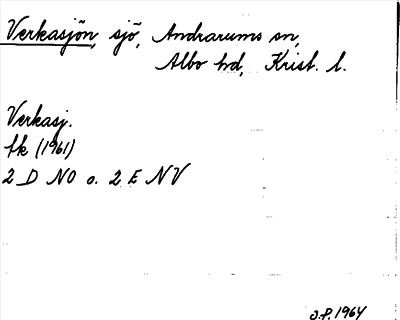 Verkasjön, sjö, Andrarums sn,
Albo hd, Krist. l.
Verkasj.
fk (1961)
2 D NO o. 2 E NV
J.P. 1964